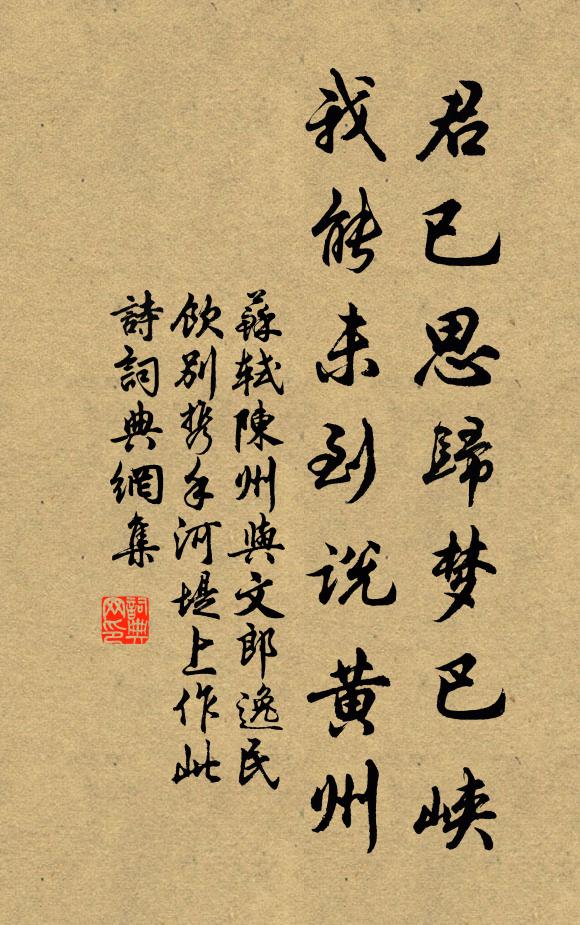 君已思歸梦巴峡
我能未到说黄州
蘇軾陳州與文郎逸民
飲別携手河堤上作此
詩詞典網集
詞典
网印